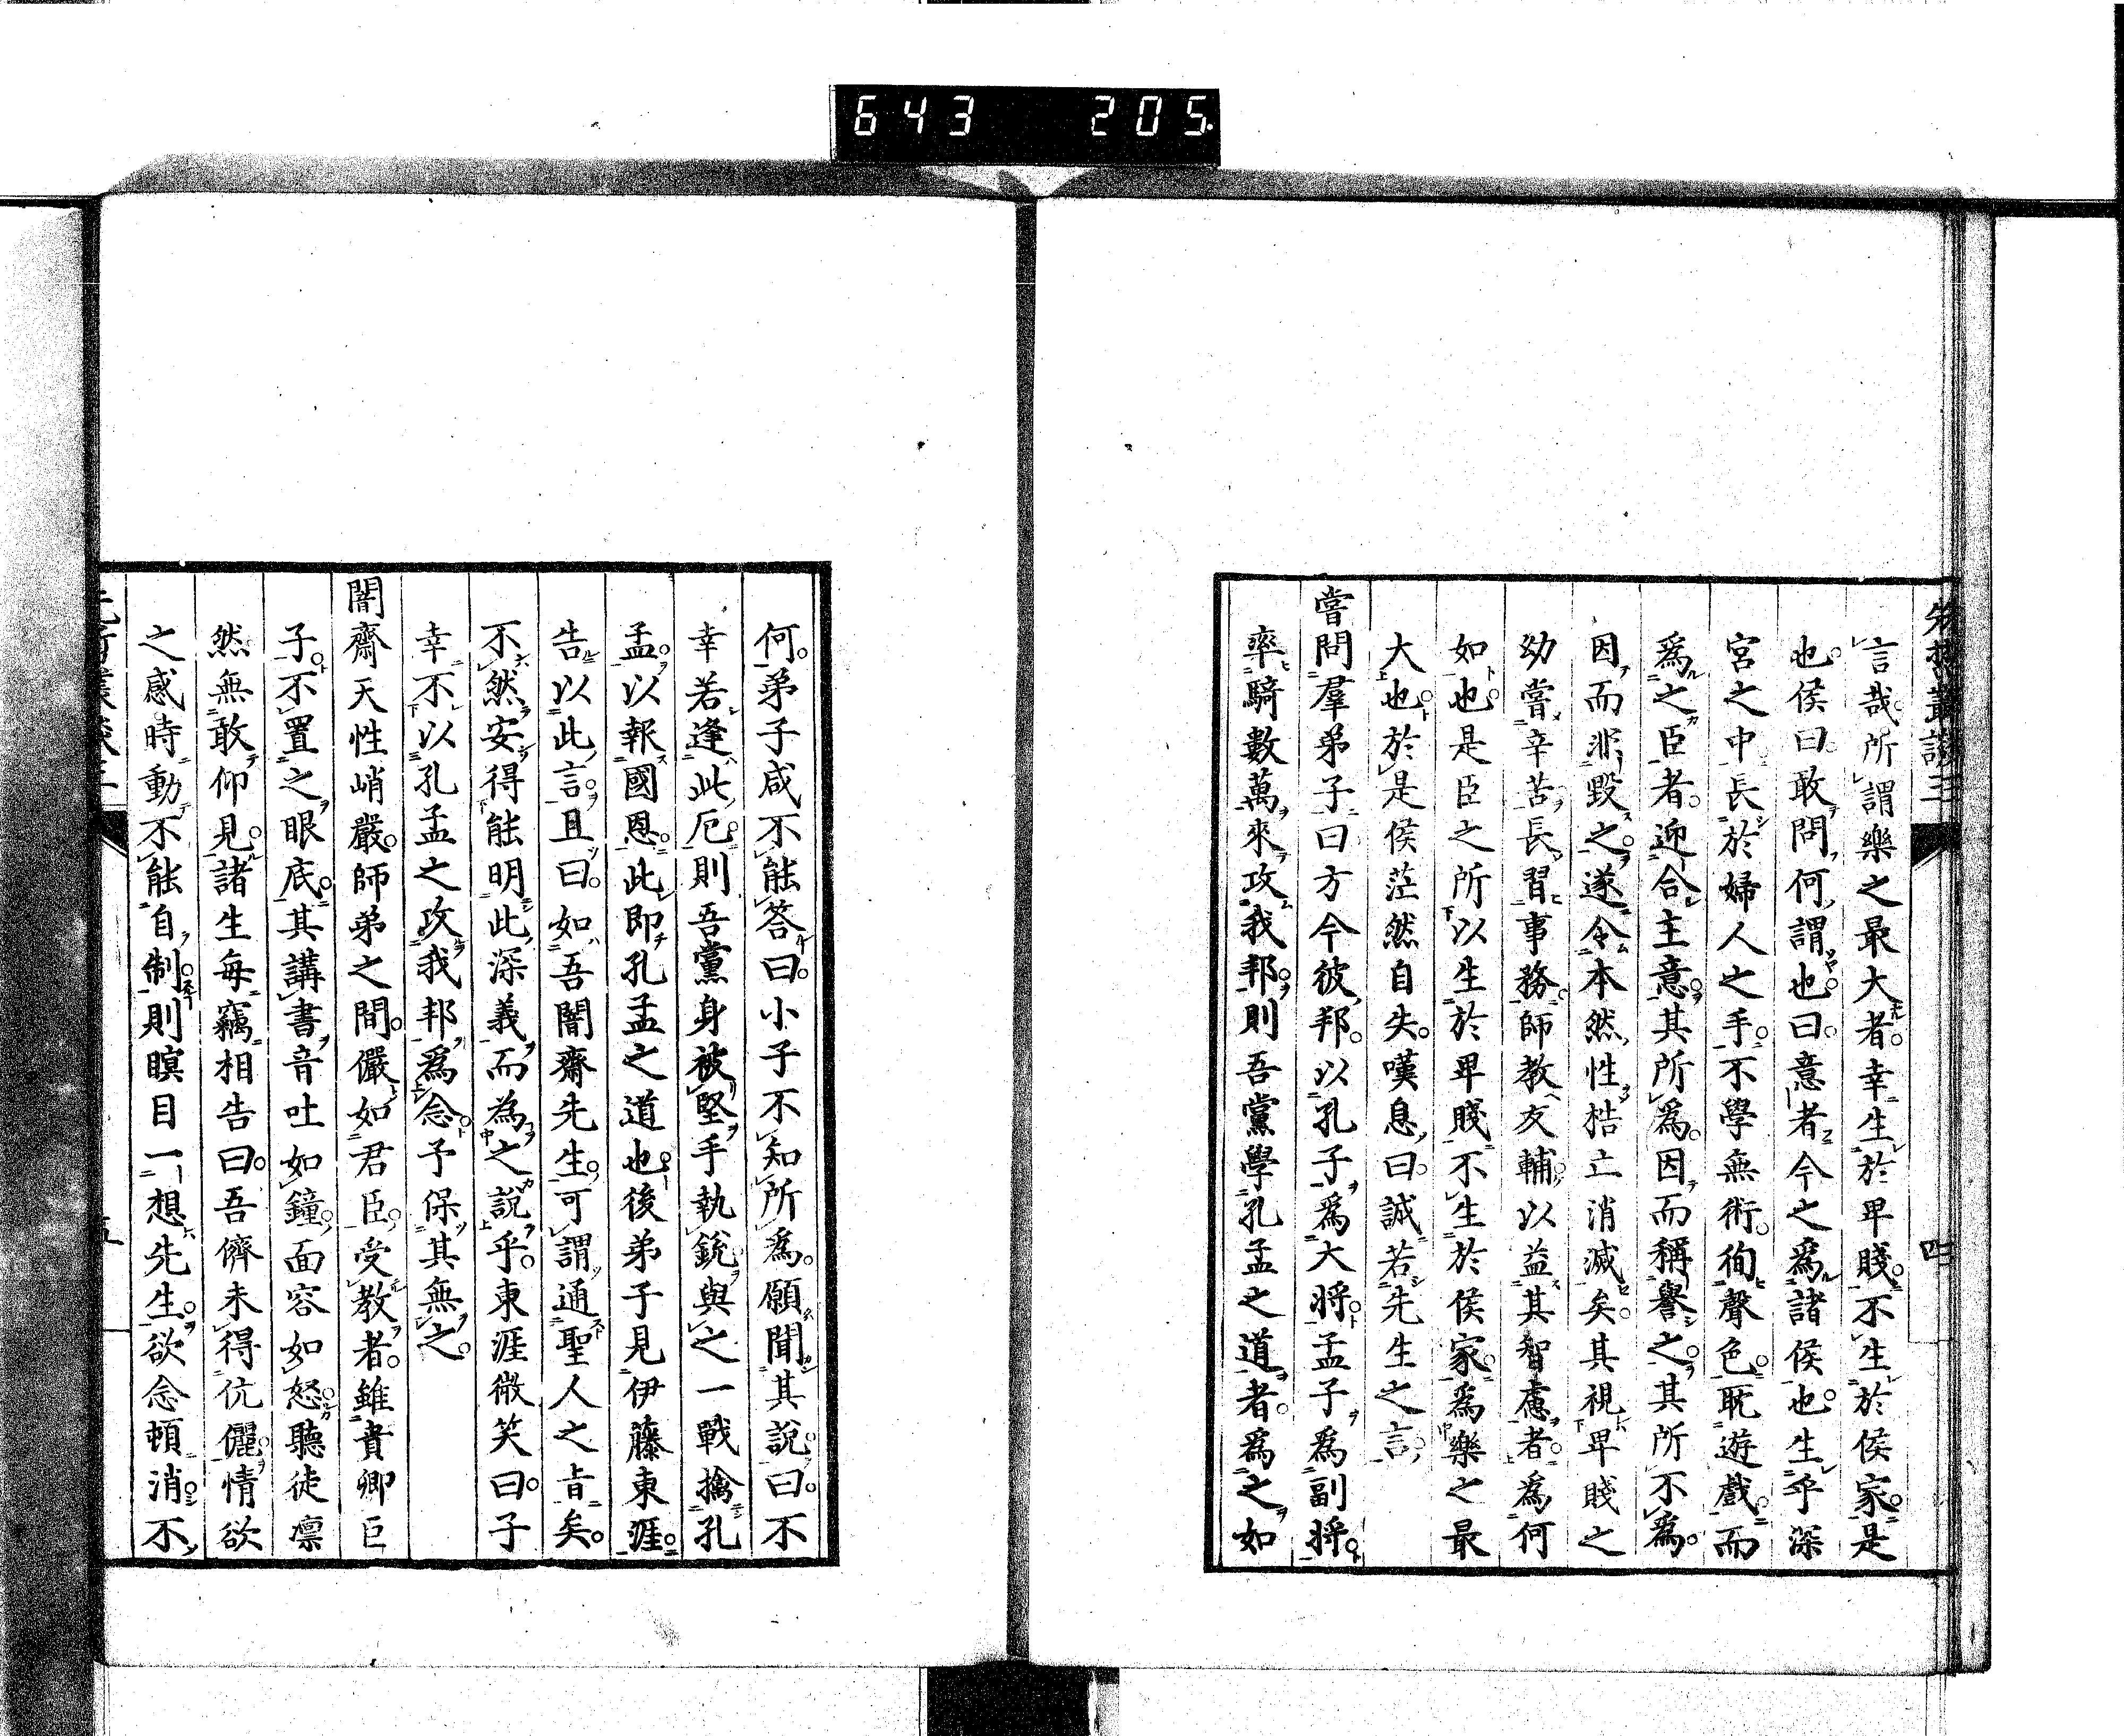 643 205
言哉。所謂樂之最大者。幸生於卑賤。不生於侯家。是
也。侯曰。敢問。何謂也。曰。意者今之爲諸侯也。生乎深
宮之中。長於婦人之手。不學無術。徇聲色。耽遊戲。而
爲之臣者。迎合主意。其所爲。因而稱譽之。其所不爲。
因而非毀之。遂令本然性梏亡消滅矣。其視卑賤之
幼嘗辛苦。長習事務。師教友輔。以益其智慮者。爲何
如也。是臣之所以生於卑賤。不生於侯家。爲樂之最
大也。於是侯茫然自失。嘆息曰。誠若先生之言。
嘗問羣弟子曰。方今彼邦。以孔子爲大將。孟子爲副將。
率騎數萬。來攻我邦。則吾黨學孔孟之道者。爲之如
四
何。弟子咸不能答曰。小子不知所爲。願聞其說。曰。不
幸若逢此厄。則吾黨身被堅。手執銳。與之一戰。擒孔
孟。以報國恩。此即孔孟之道也。後弟子見伊藤東涯。
告以此言。且曰。如吾闇齋先生。可謂通聖人之旨矣。
不然。安得能明此深義。而為之說乎。東涯微笑曰。子
幸不以孔孟之攻我邦爲念。予保其無之。
闇齋天性峭嚴。師弟之間。儼如君臣。受教者。雖貴卿巨
子。不置之眼底。其講書。音吐如鐘。面容如怒。聽徒凛
然無敢仰見。諸生每竊相告曰。吾儕未得伉儷。情欲
之感時動。不能自制。則瞑目一想先生。欲念頓消。不
五